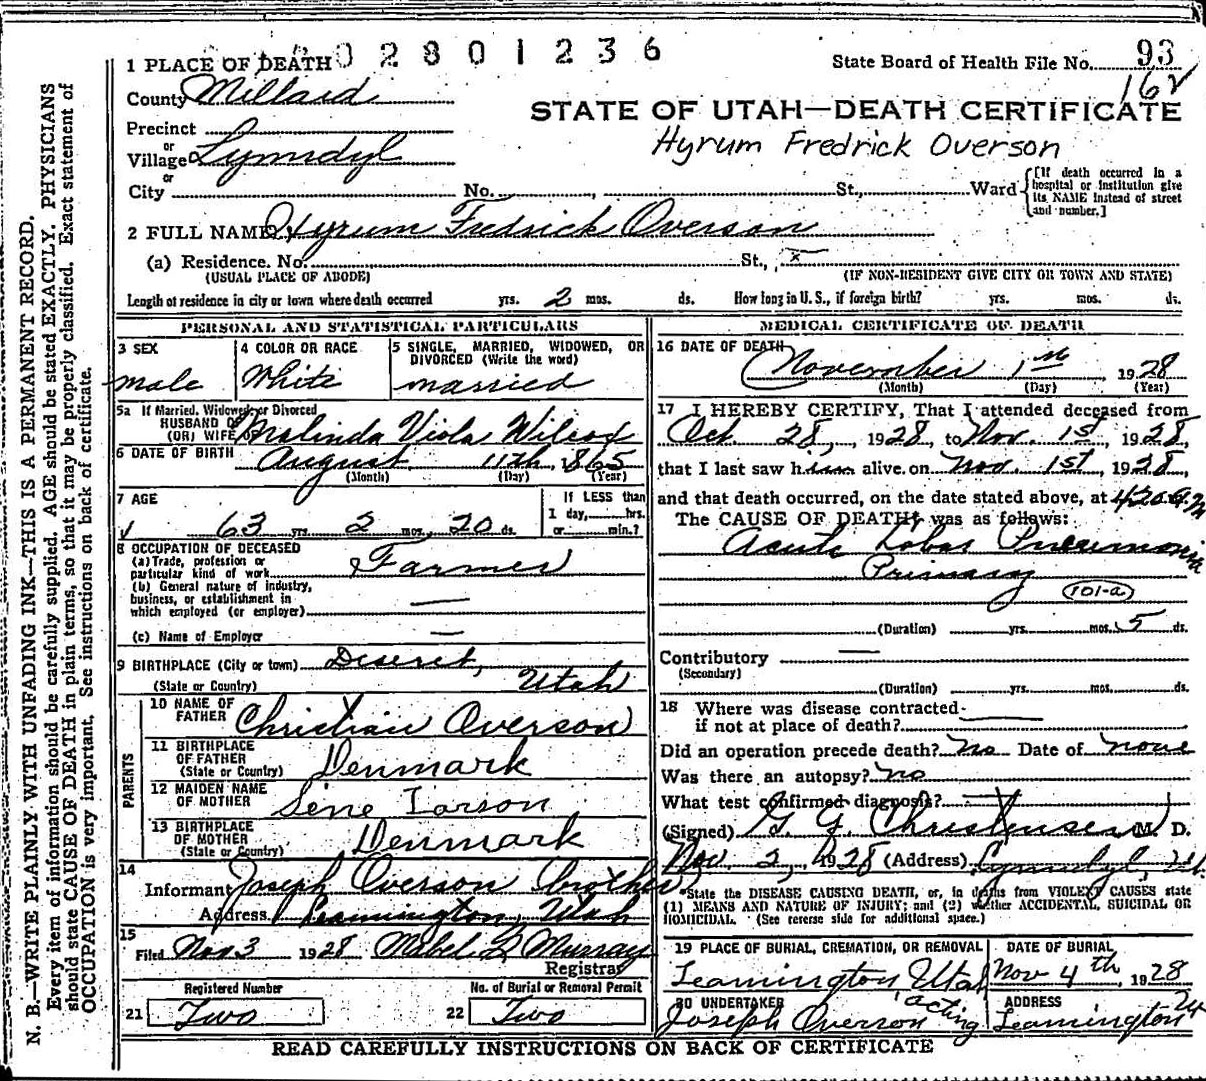 02801236
1 PLACE OF DEATH
State Board of Health File No. 93
162
County Millard
STATE OF UTAH—DEATH CERTIFICATE
Precinct
or
Village Lynndyl
Hyrum Fredrick Overson
or
City No. , St., Ward
[If death occurred in a hospital or institution give its NAME instead of street and number.]
2 FULL NAME Hyrum Fredrick Overson
(a) Residence. No. St., x
(USUAL PLACE OF ABODE) (IF NON-RESIDENT GIVE CITY OR TOWN AND STATE)
Length of residence in city or town where death occurred yrs. 2 mos. ds. How long in U. S., if foreign birth? yrs. mos. ds.
PERSONAL AND STATISTICAL PARTICULARS
3 SEX
male
4 COLOR OR RACE
White
5 SINGLE, MARRIED, WIDOWED, OR DIVORCED (Write the word)
married
5a If Married, Widowed, or Divorced
HUSBAND OF
(OR) WIFE OF Malinda Viola Wilcox
6 DATE OF BIRTH August 11th, 1865
(Month) (Day) (Year)
7 AGE
63 yrs. 2 mos. 20 ds.
If LESS than
1 day, hrs.
or min.?
8 OCCUPATION OF DECEASED
(a) Trade, profession or
particular kind of work Farmer
(b) General nature of industry,
business, or establishment in
which employed (or employer)
(c) Name of Employer
9 BIRTHPLACE (City or town) Deseret,
(State or Country) Utah
PARENTS
10 NAME OF
FATHER Christian Overson
11 BIRTHPLACE
OF FATHER
(State or Country) Denmark
12 MAIDEN NAME
OF MOTHER Sene Larson
13 BIRTHPLACE
OF MOTHER
(State or Country) Denmark
14
Informant Joseph Overson brother
Address Leamington, Utah
15
Filed Nov 3 1928 Mabel Murray
Registrar
Registered Number
21 Two
No. of Burial or Removal Permit
22 Two
MEDICAL CERTIFICATE OF DEATH
16 DATE OF DEATH
November 1st, 1928
(Month) (Day) (Year)
17 I HEREBY CERTIFY, That I attended deceased from
Oct. 28, 1928, to Nov. 1st, 1928,
that I last saw him alive on Nov. 1st, 1928,
and that death occurred, on the date stated above, at 420 a.m
The CAUSE OF DEATH was as follows:
Acute Lobar Pneumonia
Primary
101-a
(Duration) yrs. mos. 5 ds.
Contributory
(Secondary)
(Duration) yrs. mos. ds.
18 Where was disease contracted
if not at place of death?
Did an operation precede death? no Date of none
Was there an autopsy? no
What test confirmed diagnosis?
(Signed) G. Y. Christensen M. D.
Nov 2, 1928 (Address) Lynndyl, Ut.
*State the DISEASE CAUSING DEATH, or, in deaths from VIOLENT CAUSES state
(1) MEANS AND NATURE OF INJURY; and (2) whether ACCIDENTAL, SUICIDAL OR
HOMICIDAL. (See reverse side for additional space.)
19 PLACE OF BURIAL, CREMATION, OR REMOVAL
Leamington, Utah
DATE OF BURIAL
Nov 4th, 1928
20 UNDERTAKER
Joseph Overson acting
ADDRESS
Leamington Ut
READ CAREFULLY INSTRUCTIONS ON BACK OF CERTIFICATE
N. B.—WRITE PLAINLY WITH UNFADING INK—THIS IS A PERMANENT RECORD.
Every item of information should be carefully supplied. AGE should be stated EXACTLY. PHYSICIANS
should state CAUSE OF DEATH in plain terms, so that it may be properly classified. Exact statement of
OCCUPATION is very important. See instructions on back of certificate.